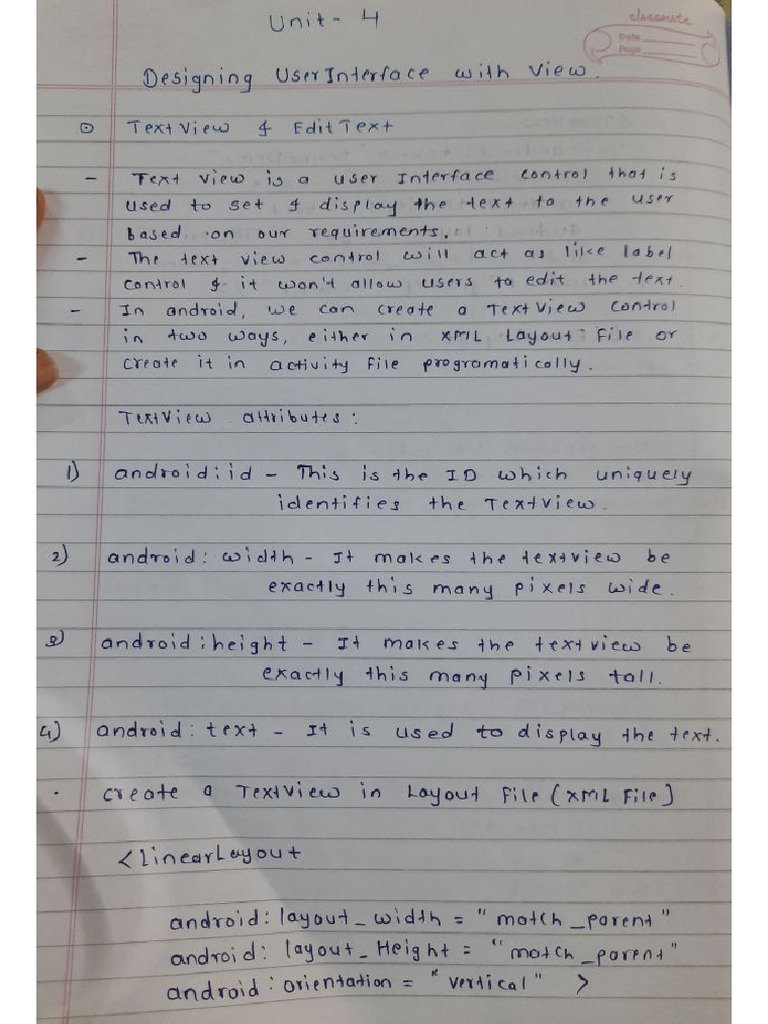 classmate
Date
Page
Unit - 4
Designing User Interface with View.
⊙ TextView & EditText
- Text View is a user Interface control that is
used to set & display the text to the user
based on our requirements.
- The text view control will act as like label
control & it won't allow users to edit the text.
- In android, we can create a TextView control
in two ways, either in XML Layout File or
create it in activity file programatically.
TextView attributes :
1) android:id - This is the ID which uniquely
identifies the TextView.
2) android: width - It makes the textview be
exactly this many pixels wide.
3) android:height - It makes the textview be
exactly this many pixels tall.
4) android: text - It is used to display the text.
. create a TextView in Layout File (XML File)
<linearLayout
android: layout_width = "match_parent"
android: layout_Height = "match_parent"
android : orientation = "vertical" >